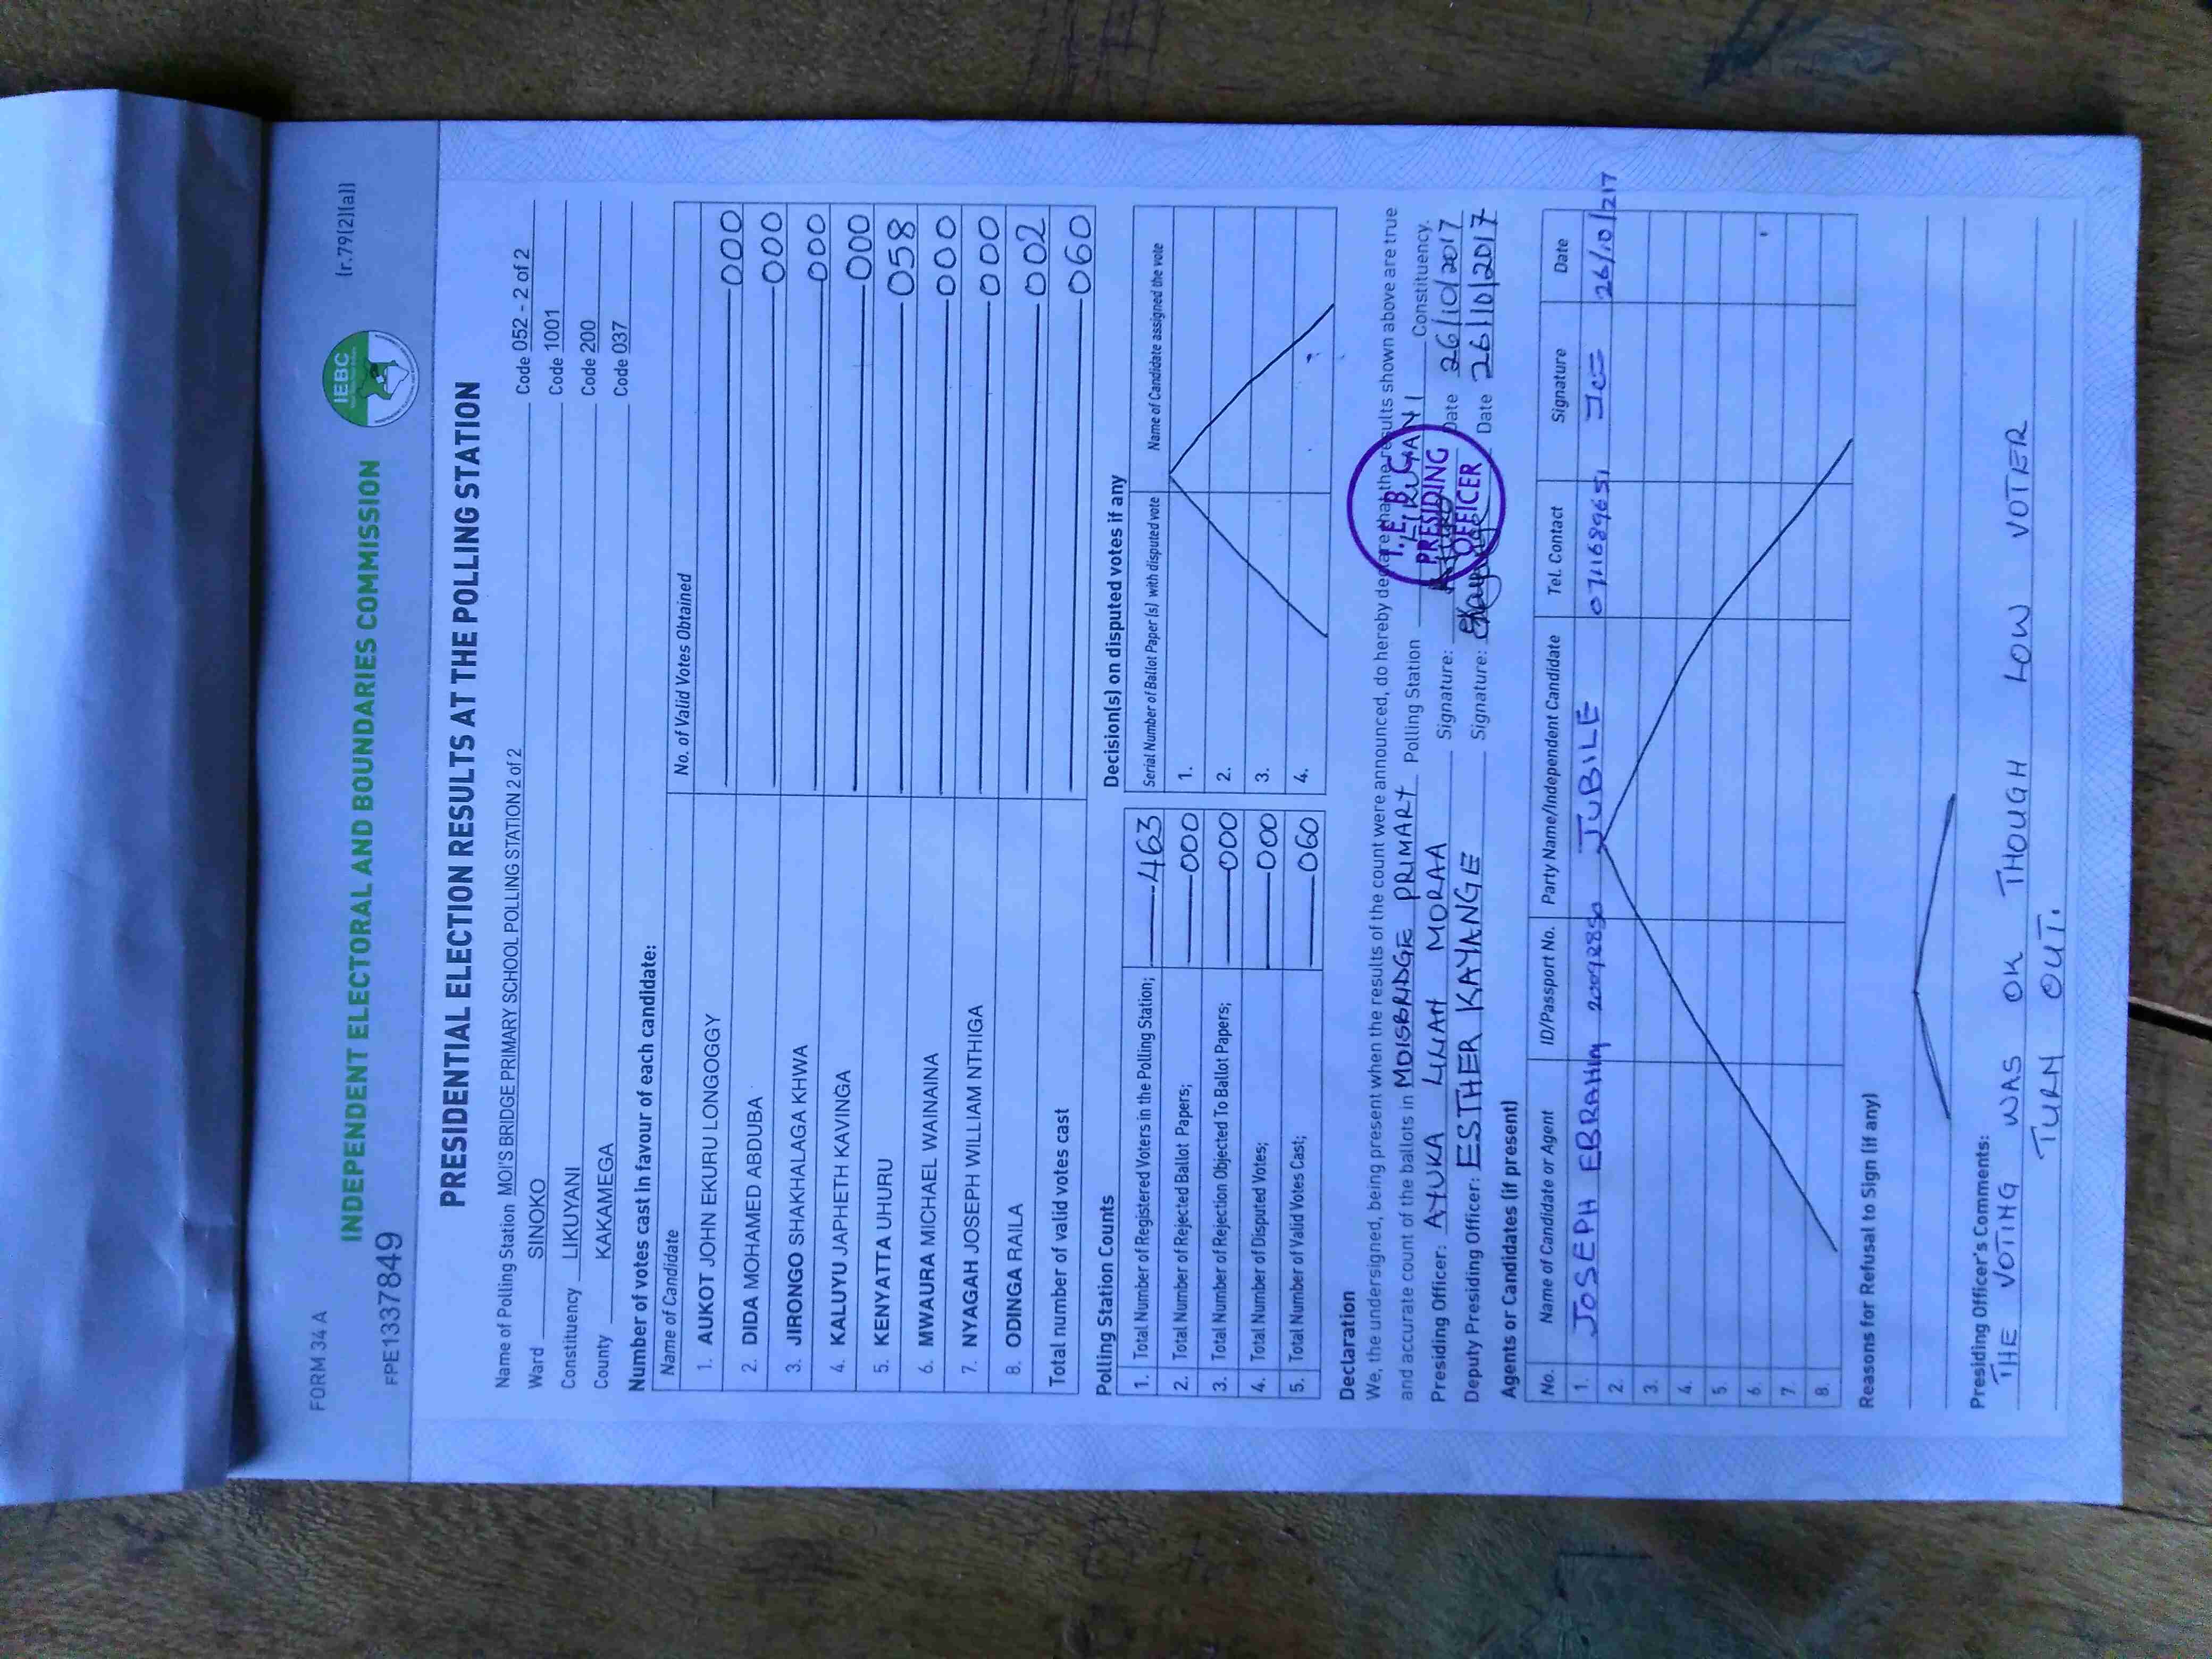 FORM 34 A
(r.79(2)(a))
INDEPENDENT ELECTORAL AND BOUNDARIES COMMISSION
IEBC
FPE1337849
PRESIDENTIAL ELECTION RESULTS AT THE POLLING STATION
Name of Polling Station MOI'S BRIDGE PRIMARY SCHOOL POLLING STATION 2 of 2 Code 052 - 2 of 2
Ward SINOKO Code 1001
Constituency LIKUYANI Code 200
County KAKAMEGA Code 037
Number of votes cast in favour of each candidate:
Name of Candidate No. of Valid Votes Obtained
1. AUKOT JOHN EKURU LONGOGGY 000
2. DIDA MOHAMED ABDUBA 000
3. JIRONGO SHAKHALAGA KHWA 000
4. KALUYU JAPHETH KAVINGA 000
5. KENYATTA UHURU 058
6. MWAURA MICHAEL WAINAINA 000
7. NYAGAH JOSEPH WILLIAM NTHIGA 000
8. ODINGA RAILA 002
Total number of valid votes cast 060
Polling Station Counts
1. Total Number of Registered Voters in the Polling Station; 463
2. Total Number of Rejected Ballot Papers; 000
3. Total Number of Rejection Objected To Ballot Papers; 000
4. Total Number of Disputed Votes; 000
5. Total Number of Valid Votes Cast; 060
Decision(s) on disputed votes if any
Serial Number of Ballot Paper (s) with disputed vote Name of Candidate assigned the vote
1.
2.
3.
4.
Declaration
We, the undersigned, being present when the results of the count were announced, do hereby declare that the results shown above are true
and accurate count of the ballots in MOISBRIDGE PRIMARY Polling Station Constituency.
Presiding Officer: AYUKA LILIAN MORAA Signature: Date 26/10/2017
Deputy Presiding Officer: ESTHER KAYANGE Signature: Date 26/10/2017
I.E.B.C
PRESIDING
OFFICER
Agents or Candidates (if present)
No. Name of Candidate or Agent ID/Passport No. Party Name/Independent Candidate Tel. Contact Signature Date
1. JOSEPH EBRAHIM JUBILE 26/10/217
2.
3.
4.
5.
6.
7.
8.
Reasons for Refusal to Sign (if any)
Presiding Officer's Comments:
THE VOTING WAS OK THOUGH LOW VOTER
TURN OUT.